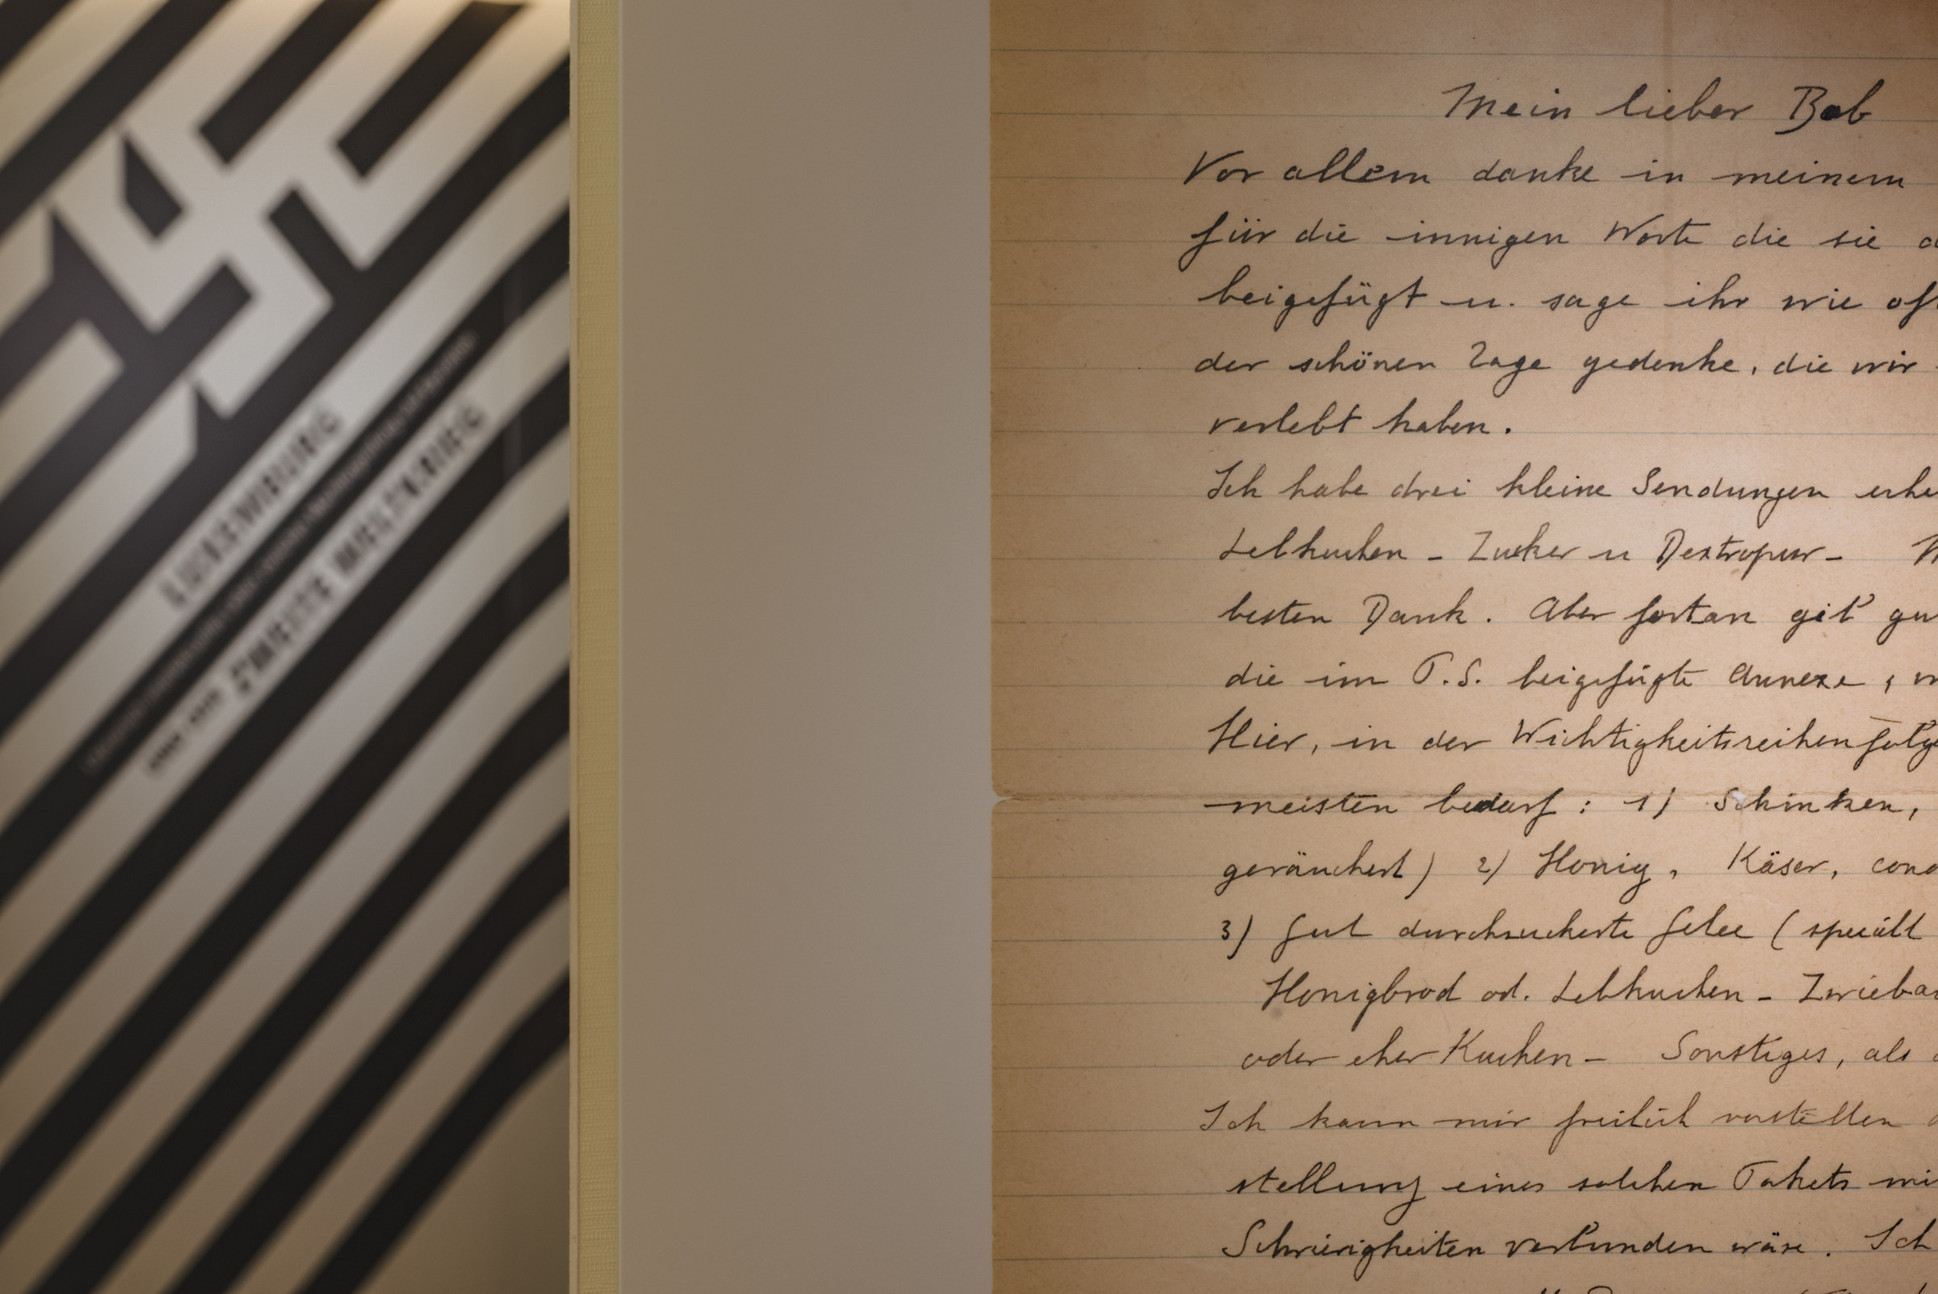 LUXEMBURG
ZWEITE WELTKRIEG
Mein lieber Bob
Vor allem danke in meinem
für die innigen Worte die sie
beigefügt u. sage ihr wie oft
der schönen Tage gedenke, die wir
verlebt haben.
Ich habe drei kleine Sendungen
Lebkuchen - Zucker u Dextropur -
besten Dank. Aber fortan gib gu
die im P.S. beigefügte Annexe,
Hier, in der Wichtigkeitsreihenfolge
meisten bedarf: 1) Schinken,
geräuchert) 2) Honig, Käser, cond
3) Gut durchzuckerte Gelee (speciell
Honigbrod od. Lebkuchen - Zwieba
oder eher Kuchen - Sonstiges, als
Ich kann mir freilich vorstellen
stellung eines solchen Pakets mi
Schwierigkeiten verbunden wäre. Ich